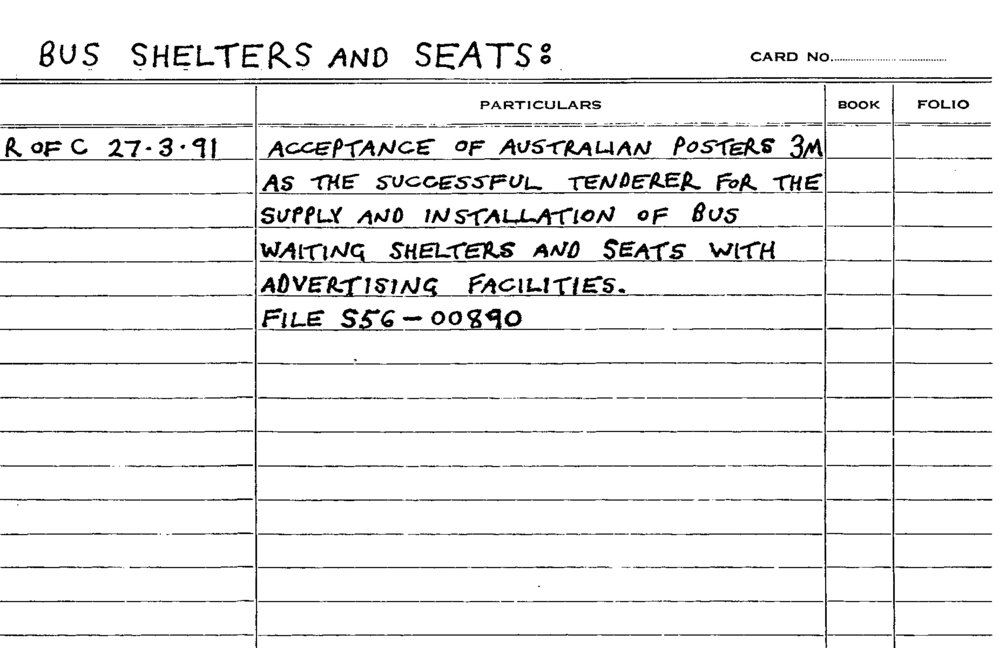 BUS SHELTERS AND SEATS:
CARD NO.
PARTICULARS BOOK FOLIO
R OF C 27.3.91 ACCEPTANCE OF AUSTRALIAN POSTERS 3M
AS THE SUCCESSFUL TENDERER FOR THE
SUPPLY AND INSTALLATION OF BUS
WAITING SHELTERS AND SEATS WITH
ADVERTISING FACILITIES.
FILE S56-00890